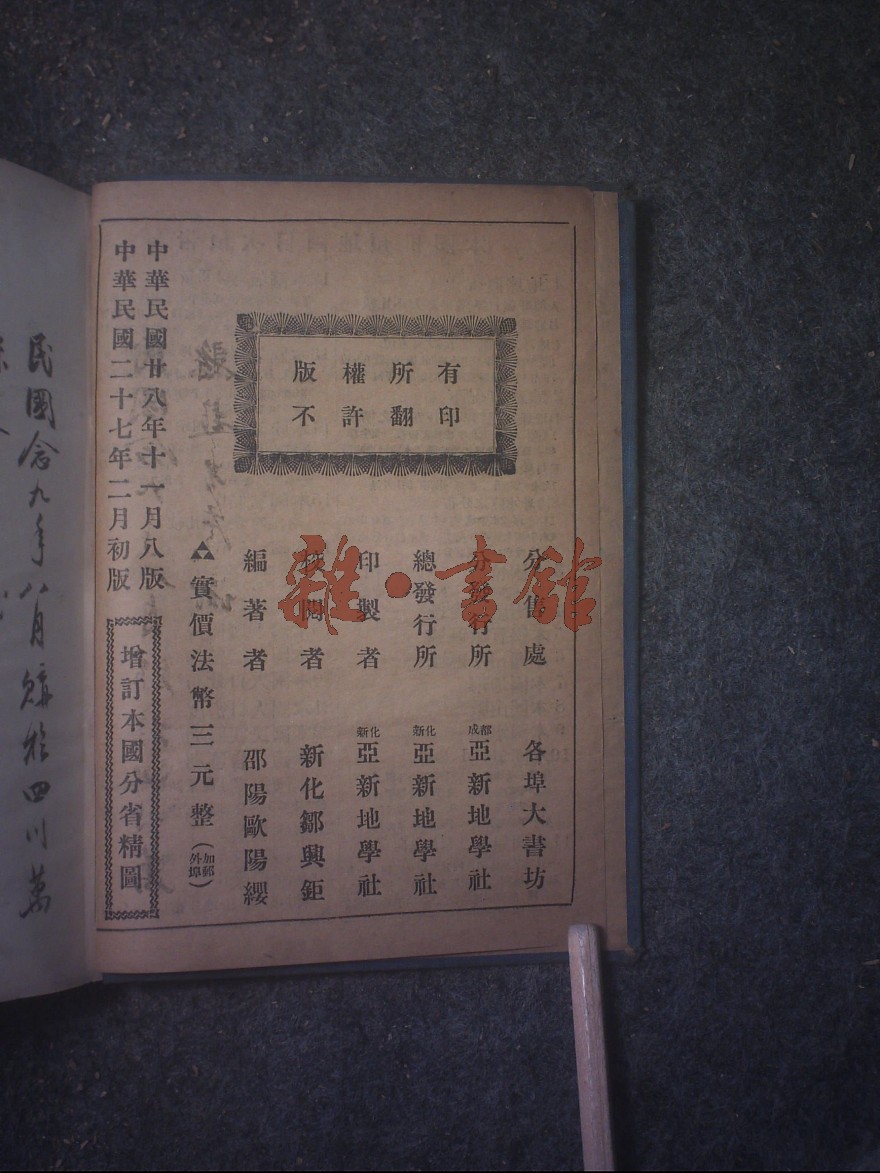 民國念九年八月購於四川萬
版權所有
不許翻印
中華民國二十七年二月初版
中華民國廿八年十一月八版
增訂本國分省精圖
實價法幣三元整(外埠加郵)
編著者 邵陽歐陽纓
校閱者 新化鄒興鉅
印製者 新化亞新地學社
總發行所 新化亞新地學社
分發行所 成都亞新地學社
分售處 各埠大書坊
雜·書館